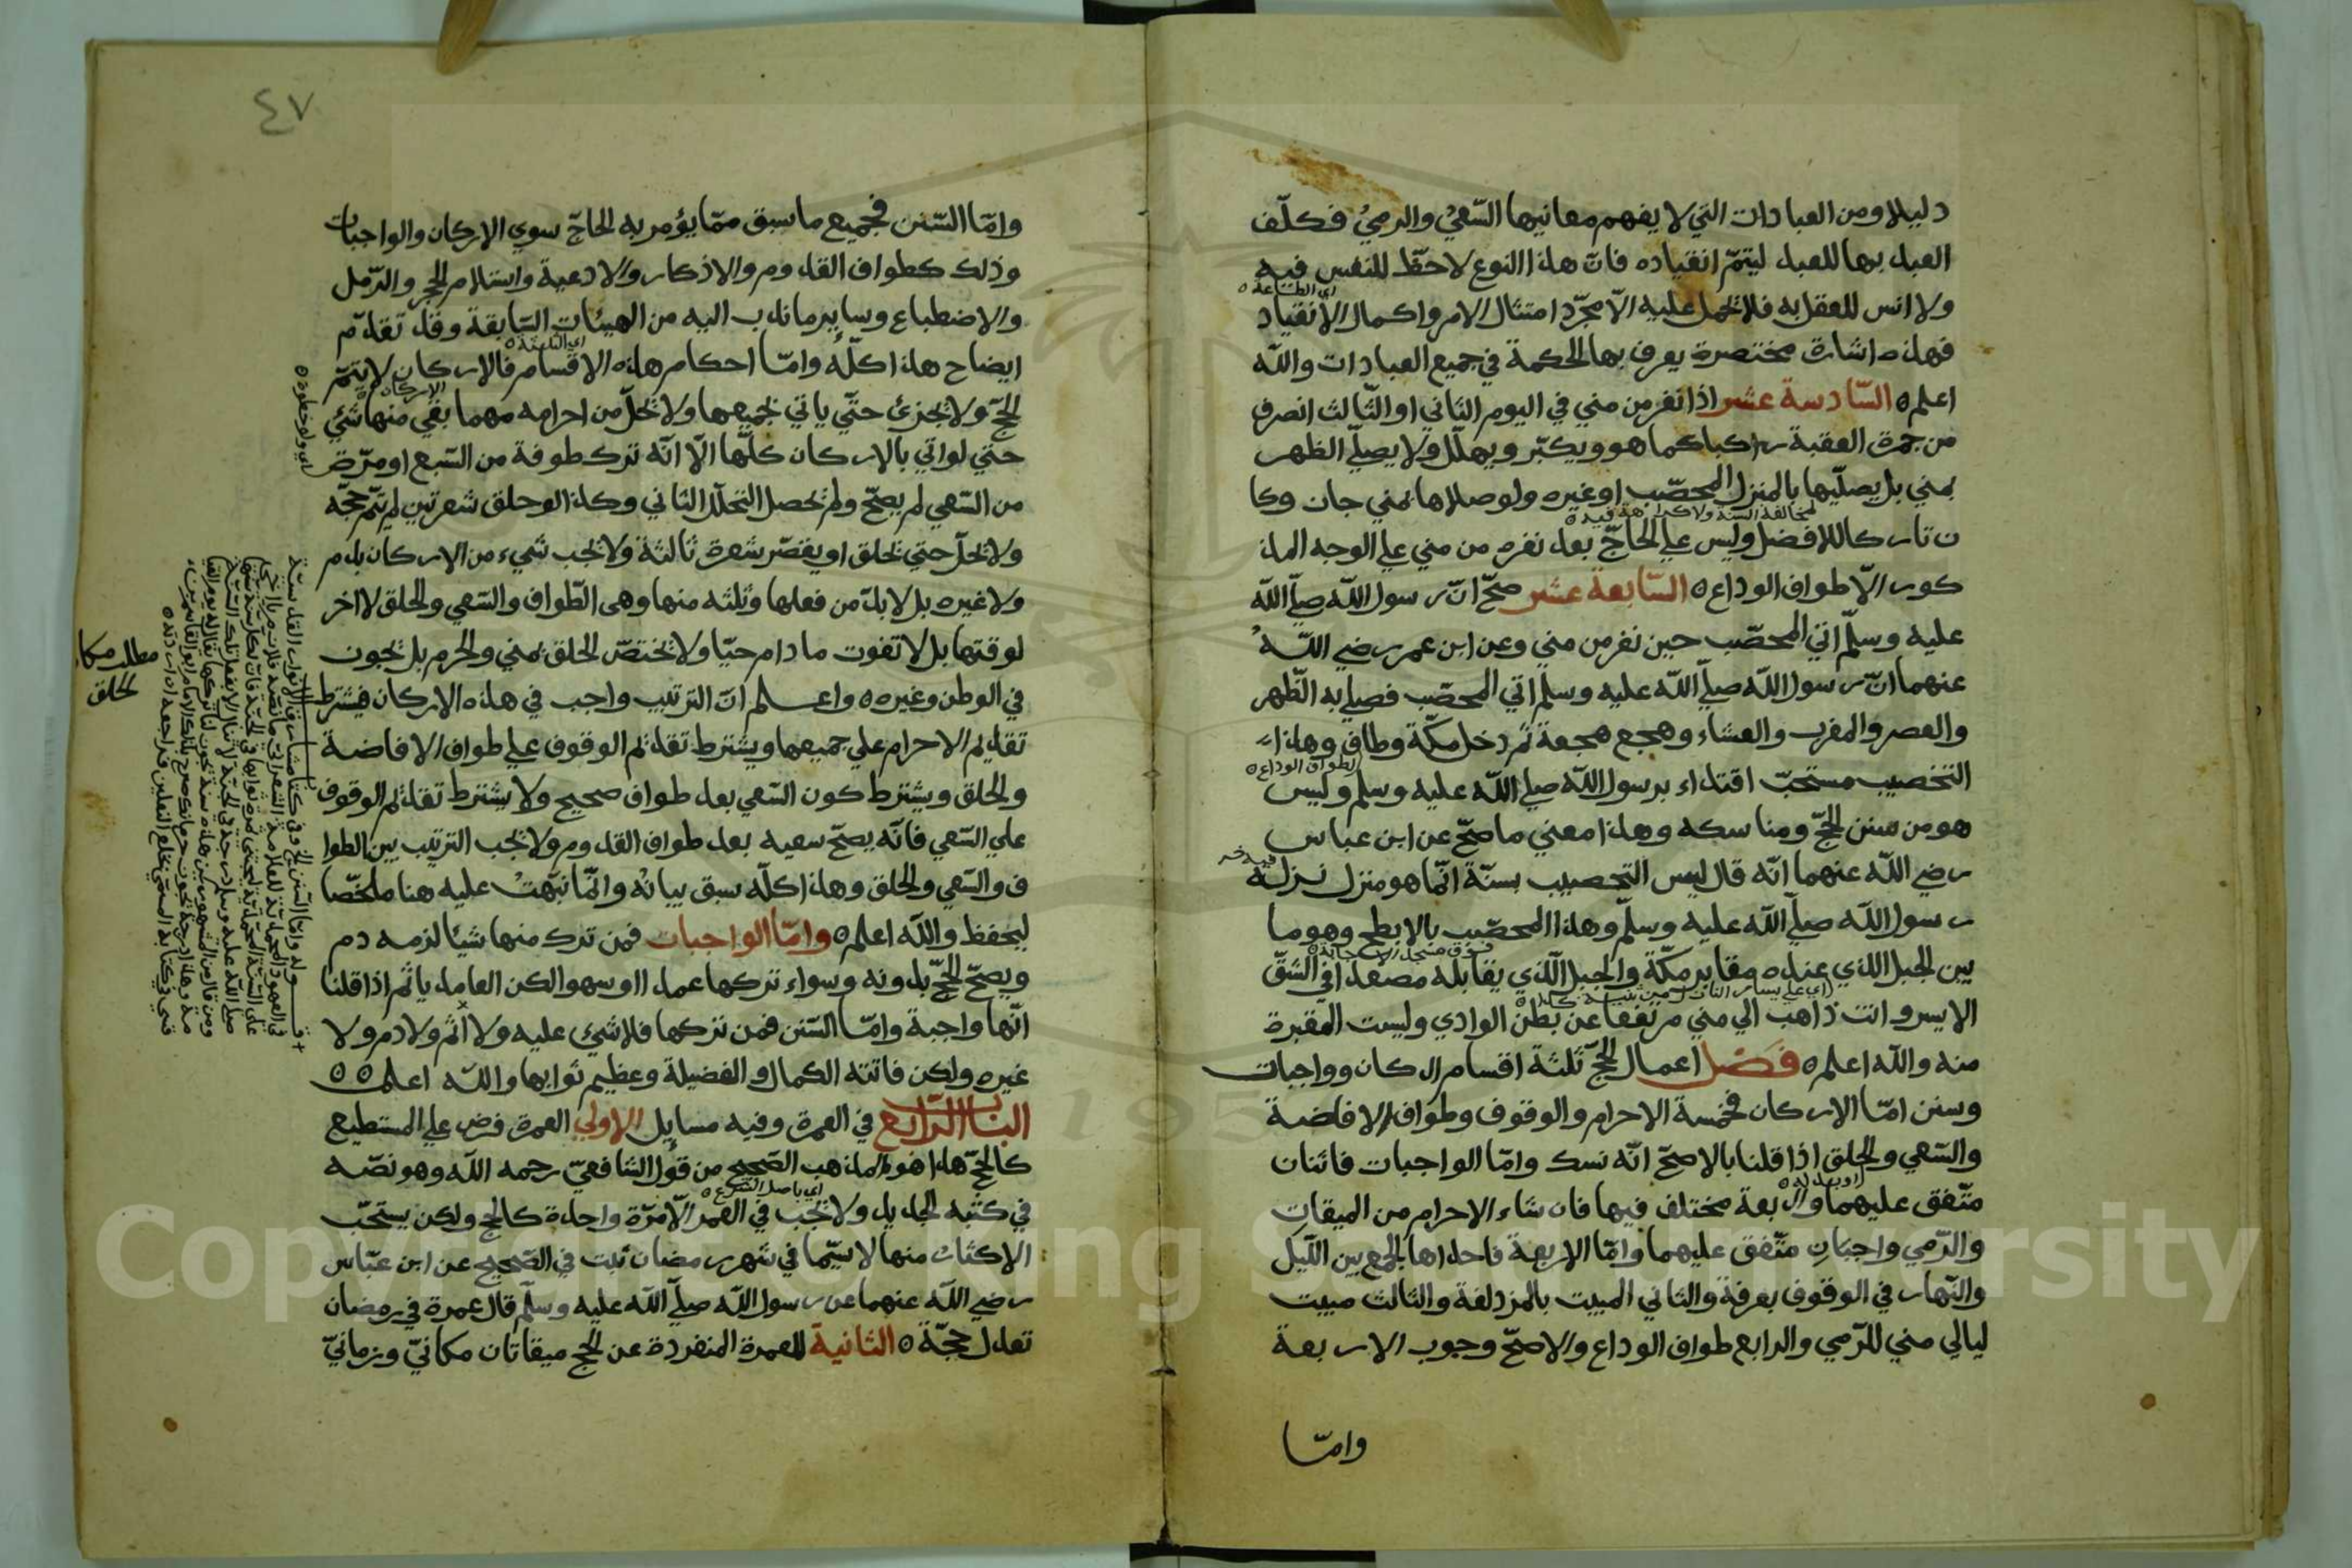 دليلا ومن العبادات التي لا يفهم معانيها السّعيُ والرميُ فكلّف
العبد بها للعبد ليتمّ انقياده فانّ هذا النوع لاحظّ للنفس فيه
ولا انس للعقل به فلا تحمل عليه الّا مجرّد امتثال الامر واكمال الانقياد
اي الطاعة
فهذه اشارة مختصرة يعرف بها الحكمة في جميع العبادات والله
اعلم السّادسة عشر اذا نفر من مني في اليوم الثاني او الثّالث انصرف
من جمرة العقبة راكبا كما هو ويكبّر ويهلّل ولا يصلّي الظهر
بمني بل يصلّيها بالمنزل المحصّب او غيره ولو صلاها بمني جاز وكا
ن تاركا للافضل وليس علي الحاجّ بعد نفره من مني علي الوجه المذ
لمخالفة السنة ولا كراهة فيه
كور الّا طواف الوداع السّابعة عشر صحّ انّ رسول الله صلّي الله
عليه وسلّم اتي المحصّب حين نفر من مني وعن ابن عمر رضي اللّه
عنهما انّ رسول الله صلّي الله عليه وسلم اتي المحصّب فصلي به الظّهر
والعصر والمغرب والعشاء وهجع هجعة ثم دخل مكّة وطاف وهذا
لطواف الوداع
التحصيب مستحبّ اقتداء برسول الله صلي الله عليه وسلم وليس
هو من سنن الحجّ ومناسكه وهذا معني ما صحّ عن ابن عباس
رضي الله عنهما انّه قال ليس التحصيب بسنّة انّما هو منزل نزله
رسول الله صلّي الله عليه وسلّم وهذا المحصّب بالابطح وهو ما
بين الجبل الذي عنده مقابر مكّة والجبل الّذي يقابله مصعدا في الشقّ
الايسر وانت ذاهب الي مني مرتفعا عن بطن الوادي وليست المقبرة
منه والله اعلم فصل اعمال الحجّ ثلثة اقسام اركان وواجبات
وسنن امّا الاركان فخمسة الاحرام والوقوف وطواف الافاضة
والسّعي والحلق اذا قلنا بالاصحّ انّه نسك وامّا الواجبات فاثنان
متّفق عليهما واربعة مختلف فيها فان شاء الاحرام من الميقات
او بعد له
والرّمي واجبان متّفق عليهما وامّا الاربعة فاحداها الجمع بين اللّيل
والنّهار في الوقوف بعرفة والثاني المبيت بالمزدلفة والثالث مبيت
ليالي مني للرّمي والرابع طواف الوداع والاصحّ وجوب الاربعة
وامّا
٤٧
وامّا السّنن فجميع ما سبق ممّا يؤمر به الحاجّ سوي الاركان والواجبات
وذلك كطواف القدوم والاذكار والادعية واستلام الحجر والرّمل
والاضطباع وساير ما ندب اليه من الهيئات السّابقة وقد تقدّم
ايضاح هذا كلّه وامّا احكام هذه الاقسام فالاركان لا يتمّ
اي الثلثة
الحجّ ولا يجزئ حتّي ياتي بجميعها ولا يحلّ من احرامه مهما بقي منها شئ
الاركان
حتي لو اتي بالاركان كلّها الّا انّه ترك طوفة من السّبع او مرّة
اي ولو خطوة
من السّعي لم يصحّ ولم يحصل التحلّل الثاني وكذا لو حلق شعرتين لم يتمّ حجّه
ولا يحلّ حتي يحلق او يقصّر شعرة ثالثة ولا يجب شيء من الاركان بدم
ولا غيره بل لا بدّ من فعلها وثلثه منها وهي الطّواف والسّعي والحلق لا اخر
لوقتها بل لا تفوت ما دام حيّا ولا يختصّ الحلق بمني والحرم بل يجوز
مطلب مكان الحلق
في الوطن وغيره واعلم انّ الترتيب واجب في هذه الاركان فيشترط
تقديم الاحرام علي جميعها ويشترط تقديم الوقوف علي طواف الافاضة
والحلق ويشترط كون السّعي بعد طواف صحيح ولا يشترط تقديم الوقوف
علي السّعي فانّه يصحّ سعيه بعد طواف القدوم ولا يجب الترتيب بين الطوا
ف والسّعي والحلق وهذا كلّه سبق بيانُه وانّما نبّهتُ عليه هنا ملخّصا
ليحفظ والله اعلم وامّا الواجبات فمن ترك منها شيئا لزمه دم
ويصحّ الحجّ بدونه وسواء تركها عمدا او سهوا لكن العامد ياثم اذا قلنا
انّها واجبة وامّا السّنن فمن تركها فلا شئ عليه ولا اثم ولا دم ولا
غيره ولكن فاتته الكمال والفضيلة وعظيم ثوابها والله اعلم
الباب الرّابع في العمرة وفيه مسايل الاولي العمرة فرض علي المستطيع
كالحجّ هذا هو المذهب الصّحيح من قول الشافعيّ رحمه الله وهو نصّه
في كتبه الجديد ولا تجب في العمر الّا مرّة واحدة كالحج ولكن يستحبّ
اي باصل الشرع
الاكثار منها لا سيّما في شهر رمضان ثبت في الصّحيح عن ابن عبّاس
رضي الله عنهما عن رسول الله صلّي الله عليه وسلّم قال عمرة في رمضان
تعدل حجّة الثانية للعمرة المنفردة عن الحج ميقاتان مكانيّ وزمانيّ
Copyright © King Saud University
195